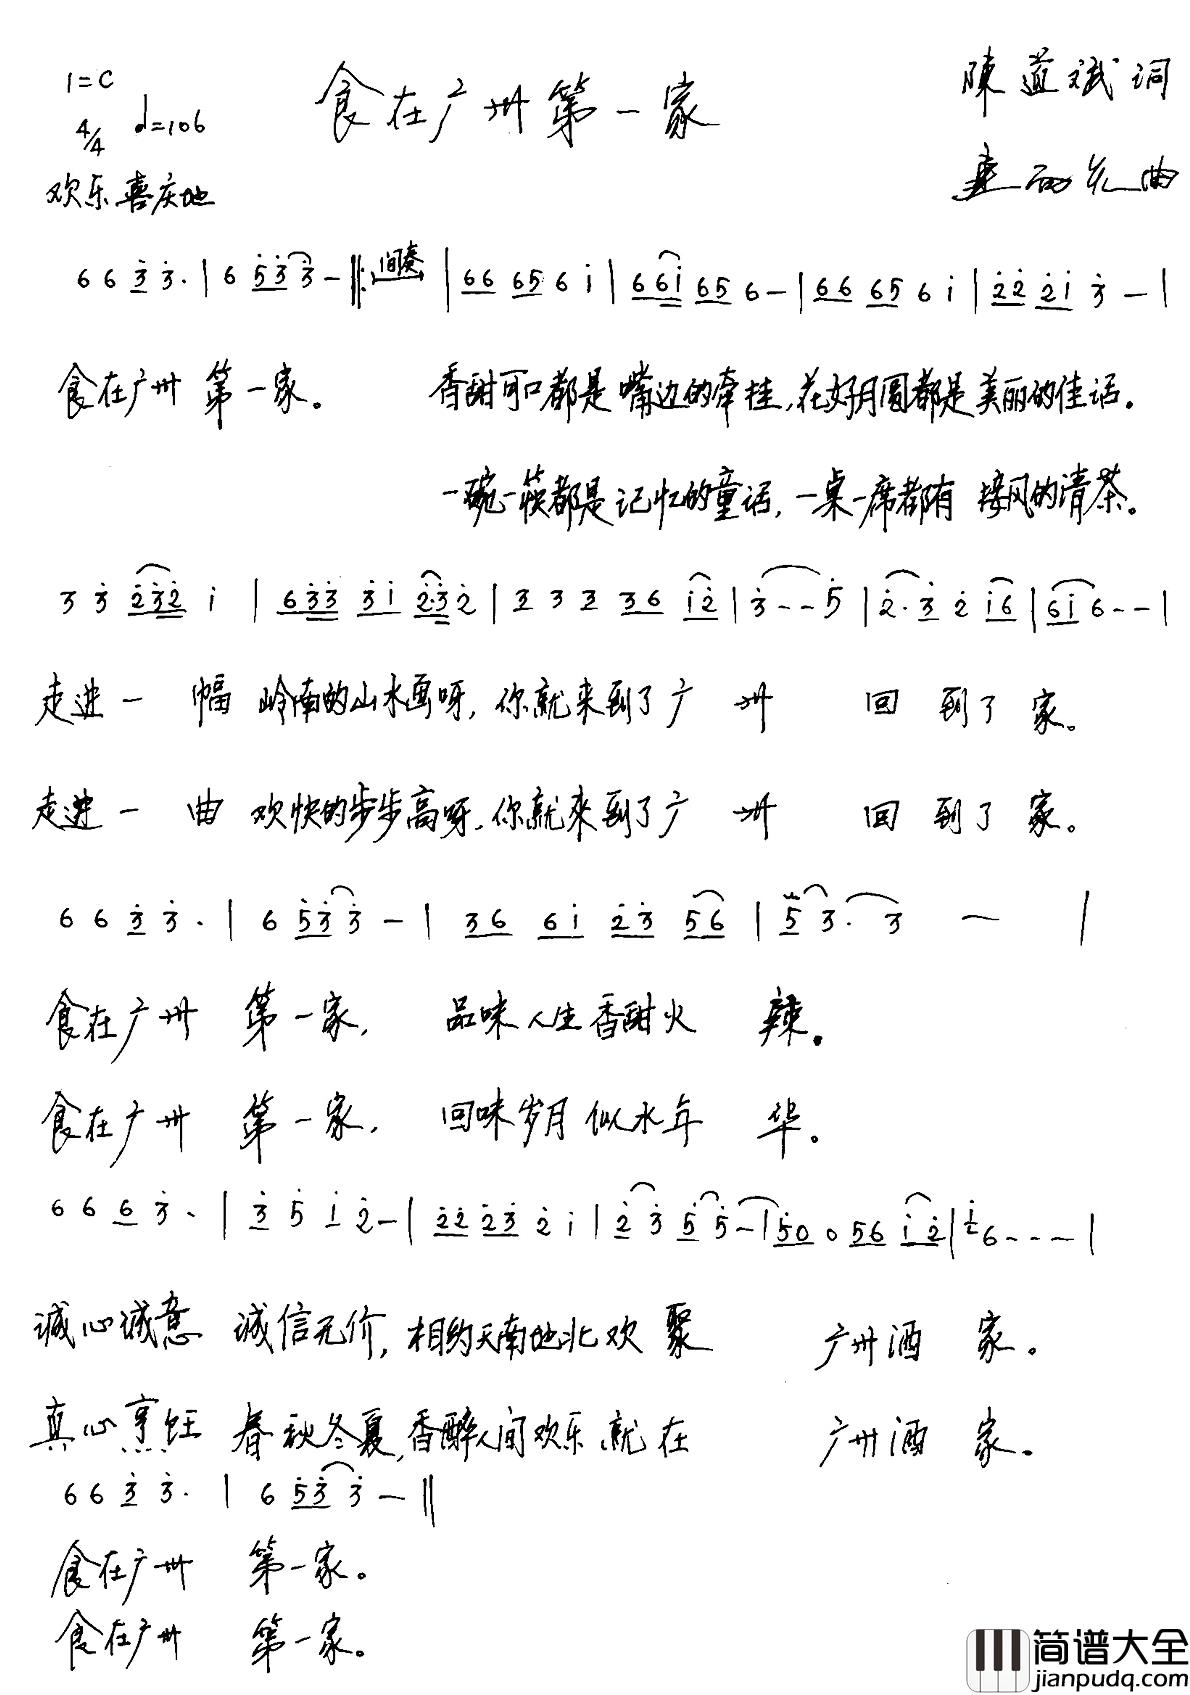 1=C
4/4 d=106
食在广州第一家
陳道斌词
曲
欢乐喜庆地
6 6 3 3· | 6 5 3 3 - ‖: 间奏 | 66 65 6 i | 66i 65 6 - | 66 65 6 i | 22 2i 3 - |
食在广州 第一家。 香甜可口都是嘴边的牵挂,花好月圆都是美丽的佳话。
一碗一筷都是记忆的童话,一桌一席都有接风的清茶。
3 3 232 i | 633 3i 2·3 2 | 3 3 3 36 i2 | 3 - - 5 | 2· 3 2 i6 | 6i 6 - - |
走进一 幅 岭南的山水画呀,你就来到了广 州 回 到了 家。
走进一 曲 欢快的步步高呀,你就來到了广 州 回 到了 家。
6 6 3 3· | 6 5 3 3 - | 36 6i 23 56 | 5 3· 3 - |
食在广州 第一家, 品味人生香甜火 辣。
食在广州 第一家, 回味岁月似水年 华。
6 6 6 3· | 3 5 i 2 - | 22 23 2 i | 2 3 5 5 - | 50 0 56 i2 | i2 6 - - - |
诚心诚意 诚信无价,相约天南地北欢 聚 广州酒 家。
真心烹饪 春秋冬夏,香醉人间欢乐就在 广州酒 家。
6 6 3 3· | 6 5 3 3 - ‖
食在广州 第一家。
食在广州 第一家。
简谱大全
jianpudq.com